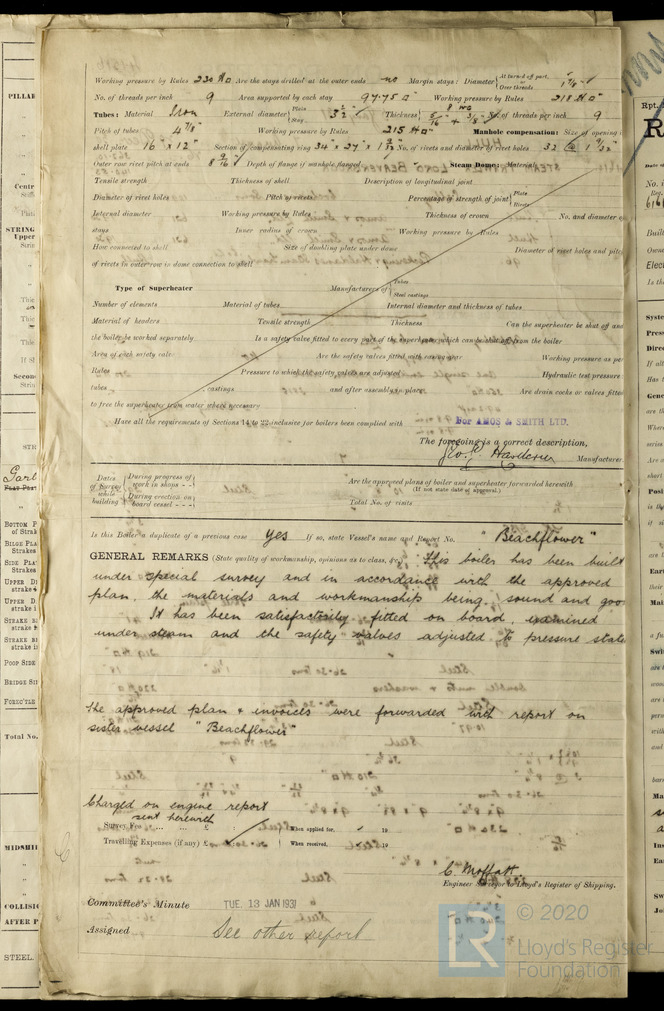 Working pressure by Rules 230 Are the stays drilled at the outer ends no Margin stays: Diameter { At turned off part, or Over threads 1 3/4"
No. of threads per inch 9 Area supported by each stay 97.75 Working pressure by Rules 218
Tubes: Material Iron External diameter { Plain Stay 3 1/2" Thickness No. of threads per inch 9
Pitch of tubes 4 7/8" Working pressure by Rules 215 Manhole compensation: Size of opening
shell plate 16" x 12" Section of compensating ring No. of rivets and diameter of rivet holes 32 @
Outer row rivet pitch at ends Depth of flange if manhole flanged Steam Dome: Material
Tensile strength Thickness of shell Description of longitudinal joint
Diameter of rivet holes Pitch of rivets Percentage of strength of joint { Plate Rivets
Internal diameter Working pressure by Rules Thickness of crown No. and diameter of
stays Inner radius of crown Working pressure by Rules
How connected to shell Size of doubling plate under dome Diameter of rivet holes and pitch
of rivets in outer row in dome connection to shell
Type of Superheater Manufacturers of { Tubes Steel castings
Number of elements Material of tubes Internal diameter and thickness of tubes
Material of headers Tensile strength Thickness Can the superheater be shut off and
the boiler be worked separately Is a safety valve fitted to every part of the superheater which can be shut off from the boiler
Area of each safety valve Are the safety valves fitted with easing gear Working pressure as per
Rules Pressure to which the safety valves are adjusted Hydraulic test pressure:
tubes castings and after assembly in place Are drain cocks or valves fitted
to free the superheater from water where necessary
Have all the requirements of Sections 14 to 22 inclusive for boilers been complied with
For AMOS & SMITH LTD.
The foregoing is a correct description,
Manufacturer.
Dates of Survey while building { During progress of work in shops - - During erection on board vessel - - -
Are the approved plans of boiler and superheater forwarded herewith
(If not state date of approval.)
Total No. of visits
Is this Boiler a duplicate of a previous case Yes If so, state Vessel's name and Report No. "Beachflower"
GENERAL REMARKS (State quality of workmanship, opinions as to class, &c. This boiler has been built
under special survey and in accordance with the approved
plan, the materials and workmanship being sound and goo
It has been satisfactorily fitted on board, examined
under steam and the safety valves adjusted to pressure state
The approved plan & invoices were forwarded with report on
sister vessel "Beachflower"
Charged on engine report
sent herewith
Survey Fee ... ... £ : : When applied for, 19
Travelling Expenses (if any) £ : : When received, 19
C. Moffatt
Engineer Surveyor to Lloyd's Register of Shipping.
Committee's Minute TUE. 13 JAN 1931
Assigned See other report
© 2020
Lloyd's Register
Foundation